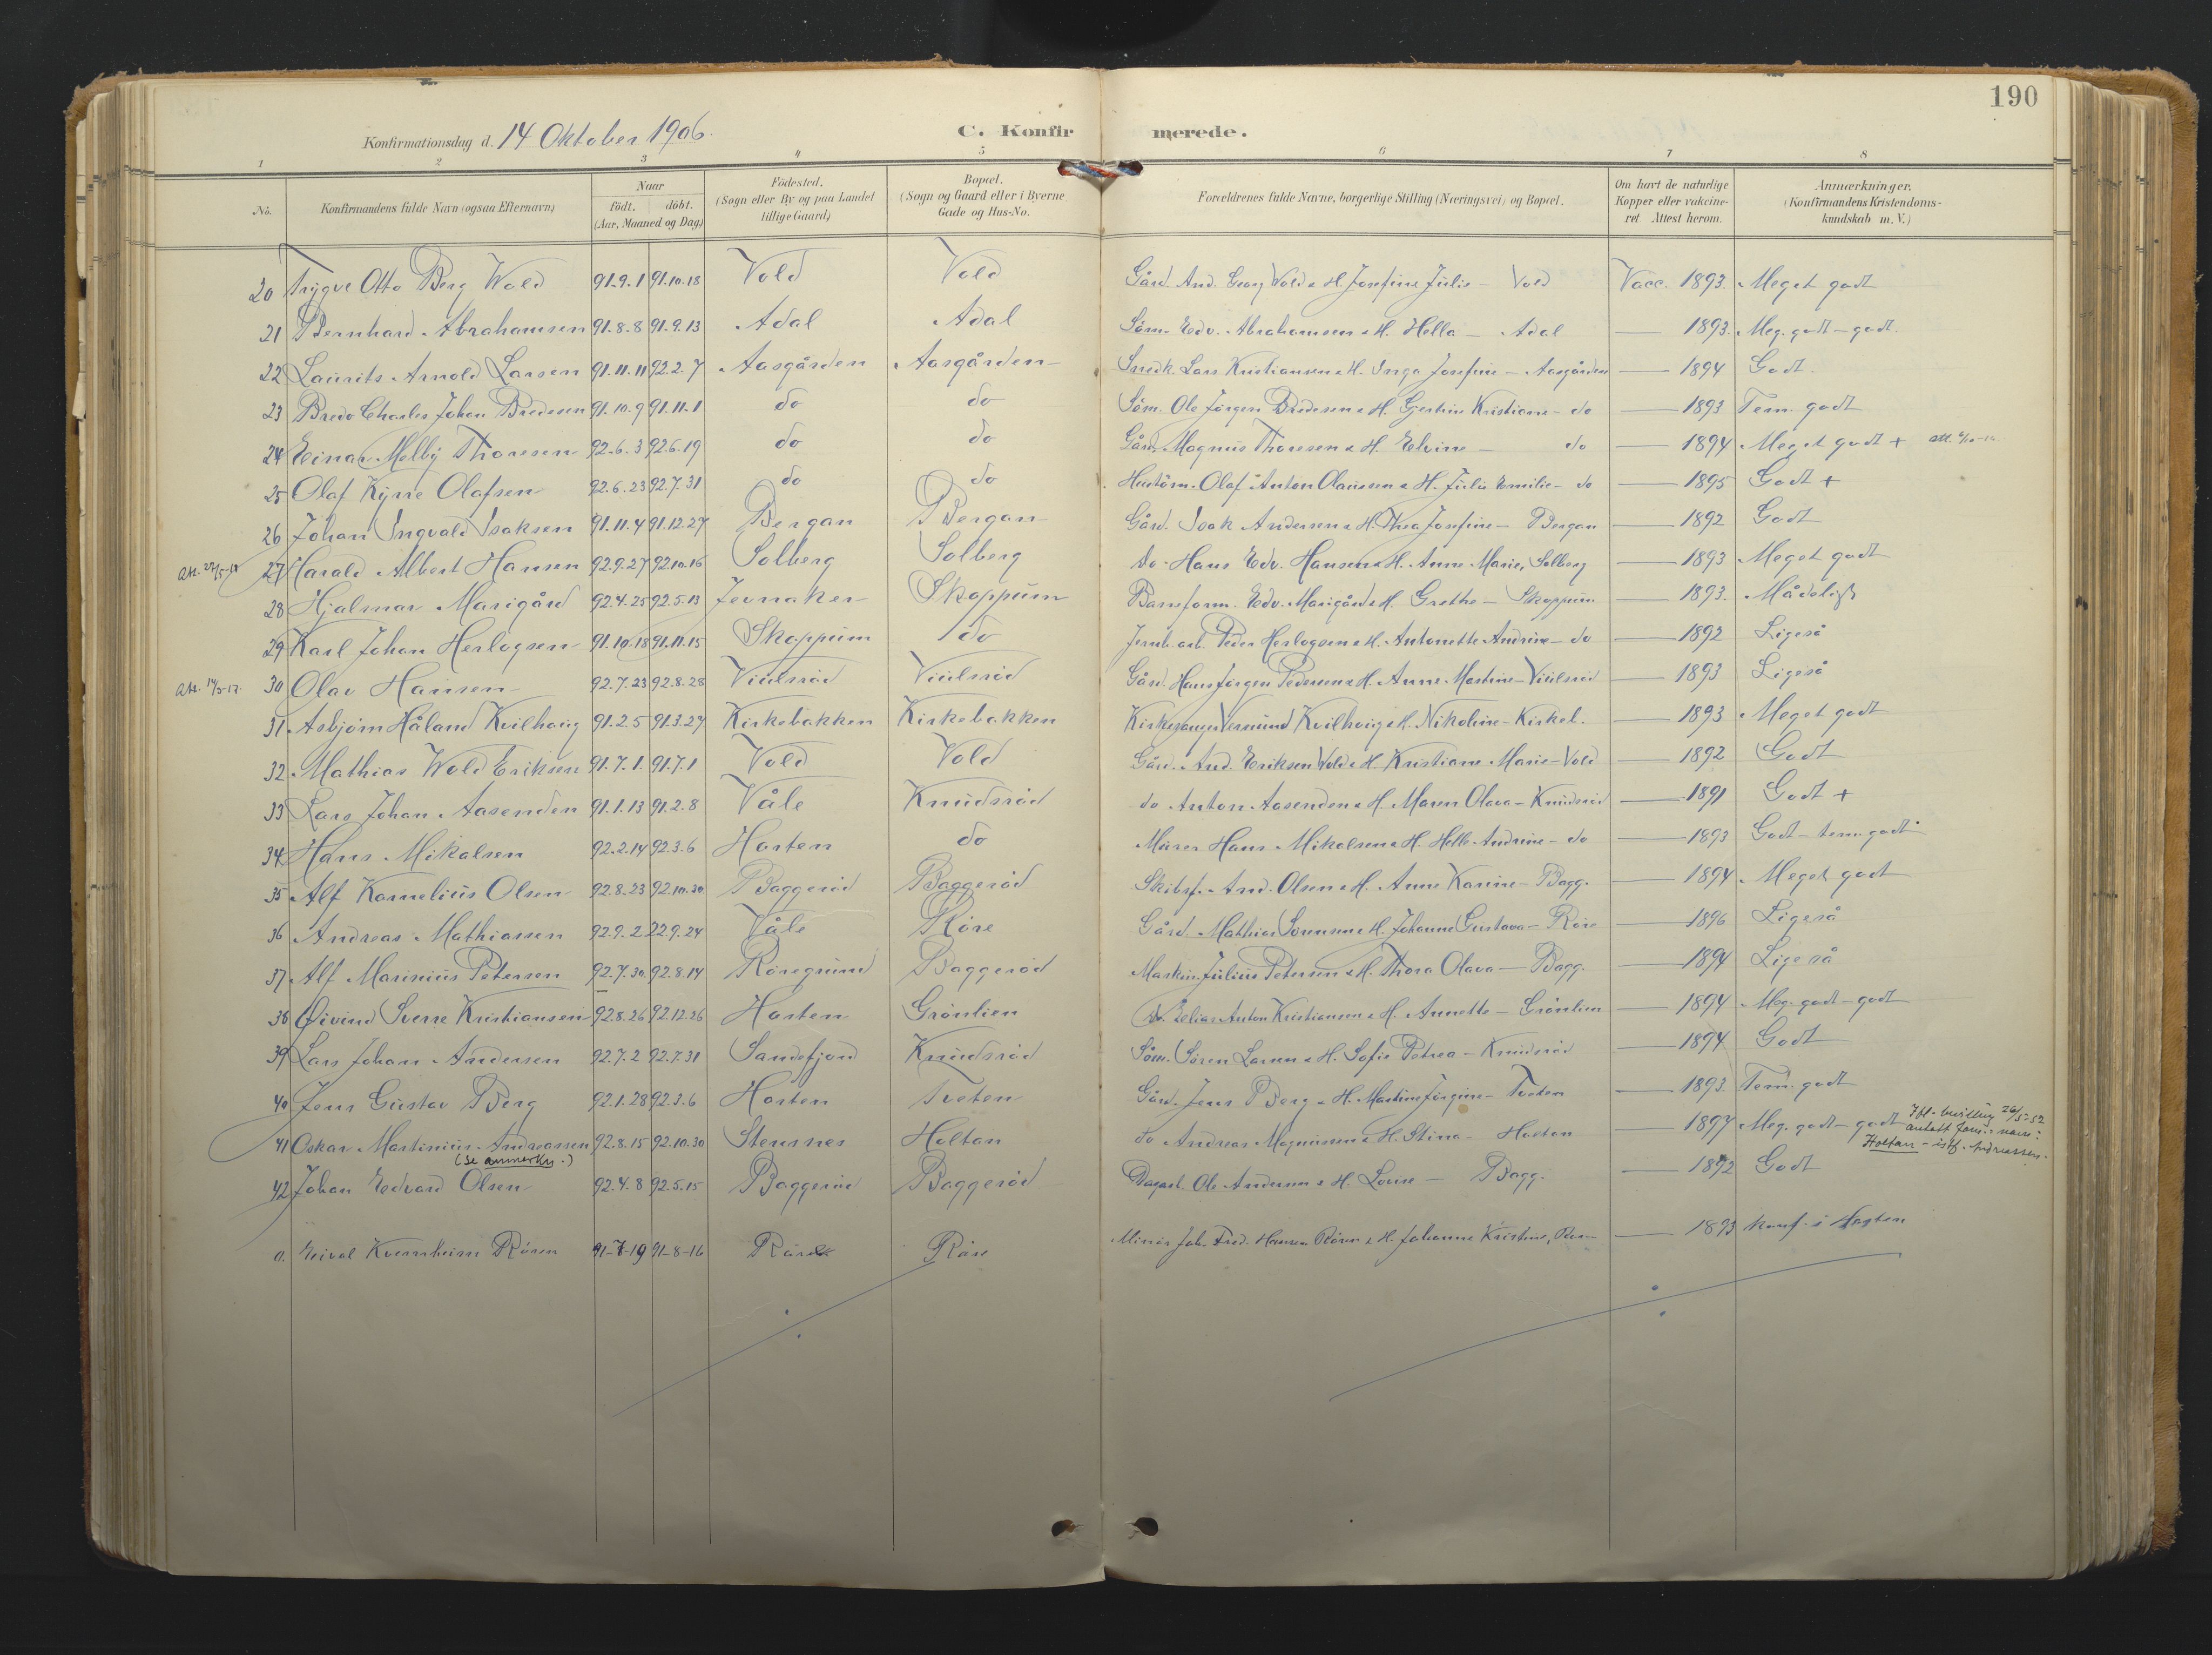 190
Konfirmationsdag d. 14 Oktober 1906.
C. Konfirmerede.
1 2 3 4 5 6 7 8
No. Konfirmandens fulde Navn (ogsaa Efternavn) Naar födt. döbt. (Aar, Maaned og Dag) Födested. (Sogn eller By og paa Landet tillige Gaard) Bopæl. (Sogn og Gaard eller i Byerne Gade og Hus-No. Forældrenes fulde Navne, borgerlige Stilling (Næringsvei) og Bopæl. Om havt de naturlige Kopper eller vakcineret Attest herom. Anmærkninger. (Konfirmandens Kristendomskundskab m. V.)
20 Trygve Otto Berg Wold 91.9.1 91.10.18 Vold Vold Gård. And. Georg Wold & H. Josefine Julie - Vold Vacc. 1893. Meget godt
21 Bernhard Abrahamsen 91.8.8 91.9.13 Adal Adal Söm. Edv. Abrahamsen & H. Hella - Adal — 1893. Meg. godt - godt.
22 Laurits Arnold Larsen 91.11.11 92.2.7 Aasgården Aasgården Snedk. Lars Kristiansen & H. Inga Josefine - Aasgården — 1894 Godt.
23 Bredo Charles Johan Bredesen 91.10.9 91.11.1 do do Söm. Ole Jörgen Bredesen & H. Gjertine Kristiane - do — 1893 Tem. godt
24 Einar Melby Thoresen 92.6.3 92.6.19 do do Gård. Magnus Thoresen & H. Elvine - do — 1894 Meget godt + att.
25 Olaf Kyrre Olafsen 92.6.23 92.7.31 do do Olaf Anton Olaussen & H. Julie Emilie - do — 1895 Godt +
26 Johan Ingvald Isaksen 91.11.4 91.12.27 Bergan Bergan Gård. Isak Andersen & H. Thea Josefine - Bergan — 1892 Godt
att. 27/5-18 27 Harald Albert Hansen 92.9.27 92.10.16 Solberg Solberg do - Hans Edv. Hansen & H. Anne Marie, Solberg — 1893 Meget godt
28 Hjalmar Marigård 92.4.25 92.5.13 Jevnaker Skoppum Baneform. Edv. Marigård & H. Grethe - Skoppum — 1893. Mådeligt
29 Karl Johan Herlogsen 91.10.18 91.11.15 Skoppum do Jernb. arb. Peder Herlogsen & H. Antonette Andrine - do — 1892 Ligeså
att. 14/3-17. 30 Olav Hansen 92.7.23 92.8.28 Viulsröd Viulsröd Gård. Hans Jörgen Pedersen & H. Anne Mathine - Viulsröd — 1893 Ligeså
31 Asbjörn Håland Kvilhaug 91.2.5 91.3.27 Kirkebakken Kirkebakken Kirkesanger Vermund Kvilhaug & H. Nikoline - Kirkeb. — 1893 Meget godt
32 Mathias Wold Eriksen 91.7.1. 91.7.1 Vold Vold Gård. And. Eriksen Wold & H. Kristiane Marie - Vold — 1892 Godt
33 Lars Johan Aasenden 91.1.13 91.2.8 Våle Knudsröd do Anton Aasenden & H. Maren Olava - Knudsröd — 1891 Godt +
34 Hans Mikalsen 92.2.14 92.3.6 Horten do Murer Hans Mikalsen & H. Helle Andrine - do — 1893 Godt - tem. godt
35 Alf Kornelius Olsen 92.8.23 92.10.30 Baggeröd Baggeröd Skibsf. And. Olsen & H. Anne Karine - Bagg. — 1894 Meget godt
36 Andreas Mathiassen 92.9.2 22.9.24 Våle Röre Gård. Mathias Sörensen & H. Johanne Gustava - Röre — 1896 Ligeså
37 Alf Marinius Petersen 92.7.30. 92.8.14 Röregrund Baggeröd Maskin. Julius Petersen & H. Thora Olava - Bagg. — 1894 Ligeså
38 Öivind Sverre Kristiansen 92.8.26 92.12.26 Horten Grönlien Elias Anton Kristiansen & H. Annette - Grönlien — 1894 Meg. godt - godt
39 Lars Johan Andersen 92.7.2 92.7.31 Sandefjord Knudsröd Söm. Sören Larsen & H. Sofie Petrea - Knudsröd — 1894 Godt
40 Jens Gustav Berg 92.1.28 92.3.6 Horten Tveten Gård. Jens Berg & H. Martine Jörgine - Tveten — 1893. Tem. godt
41 Oskar Martinius Andreassen 92.8.15 92.10.30 Stensnes Holtan do Andreas Magnussen & H. Stina - Holtan — 1897 Meg. godt - godt Ifl. bevilling 26/5-52 antatt fam. navn: Holtan - istf. Andreassen.
(se anmerkn.)
42 Johan Edvard Olsen 92.4.8 92.5.15 Baggeröd Baggeröd Dagarb. Ole Andersen & H. Lovise - Bagg. — 1892 Godt
0. Eival Kvernheim Rören 91-7-19 91-8-16 Röre Röre Minör Joh. Fred. Hansen Rören & H. Johanne Kristine, Röre — 1893 konf. i Horten